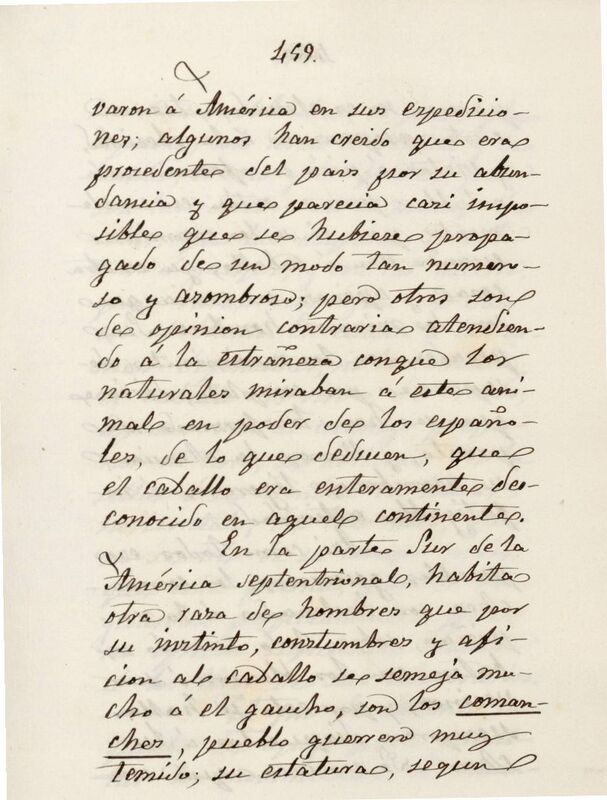 459.
varon á América en sus expedicio-
nes; algunos han creido que era
procedente del pais por su abun-
dancia y que parecia casi impo-
sible que se hubiese propa-
gado de un modo tan numero-
so y asombroso; pero otros son
de opinion contraria atendien-
do á la estrañeza conque los
naturales miraban á este ani-
mal en poder de los españo-
les, de lo que deducen, que
el caballo era enteramente des-
conocido en aquel continente.
En la parte Sur de la
América septentrional, habita
otra raza de hombres que por
su instinto, constumbres y afi-
cion al caballo se semeja mu-
cho á el gaucho, son los coman-
ches, pueblo guerrero muy
temido; su estatura, segun